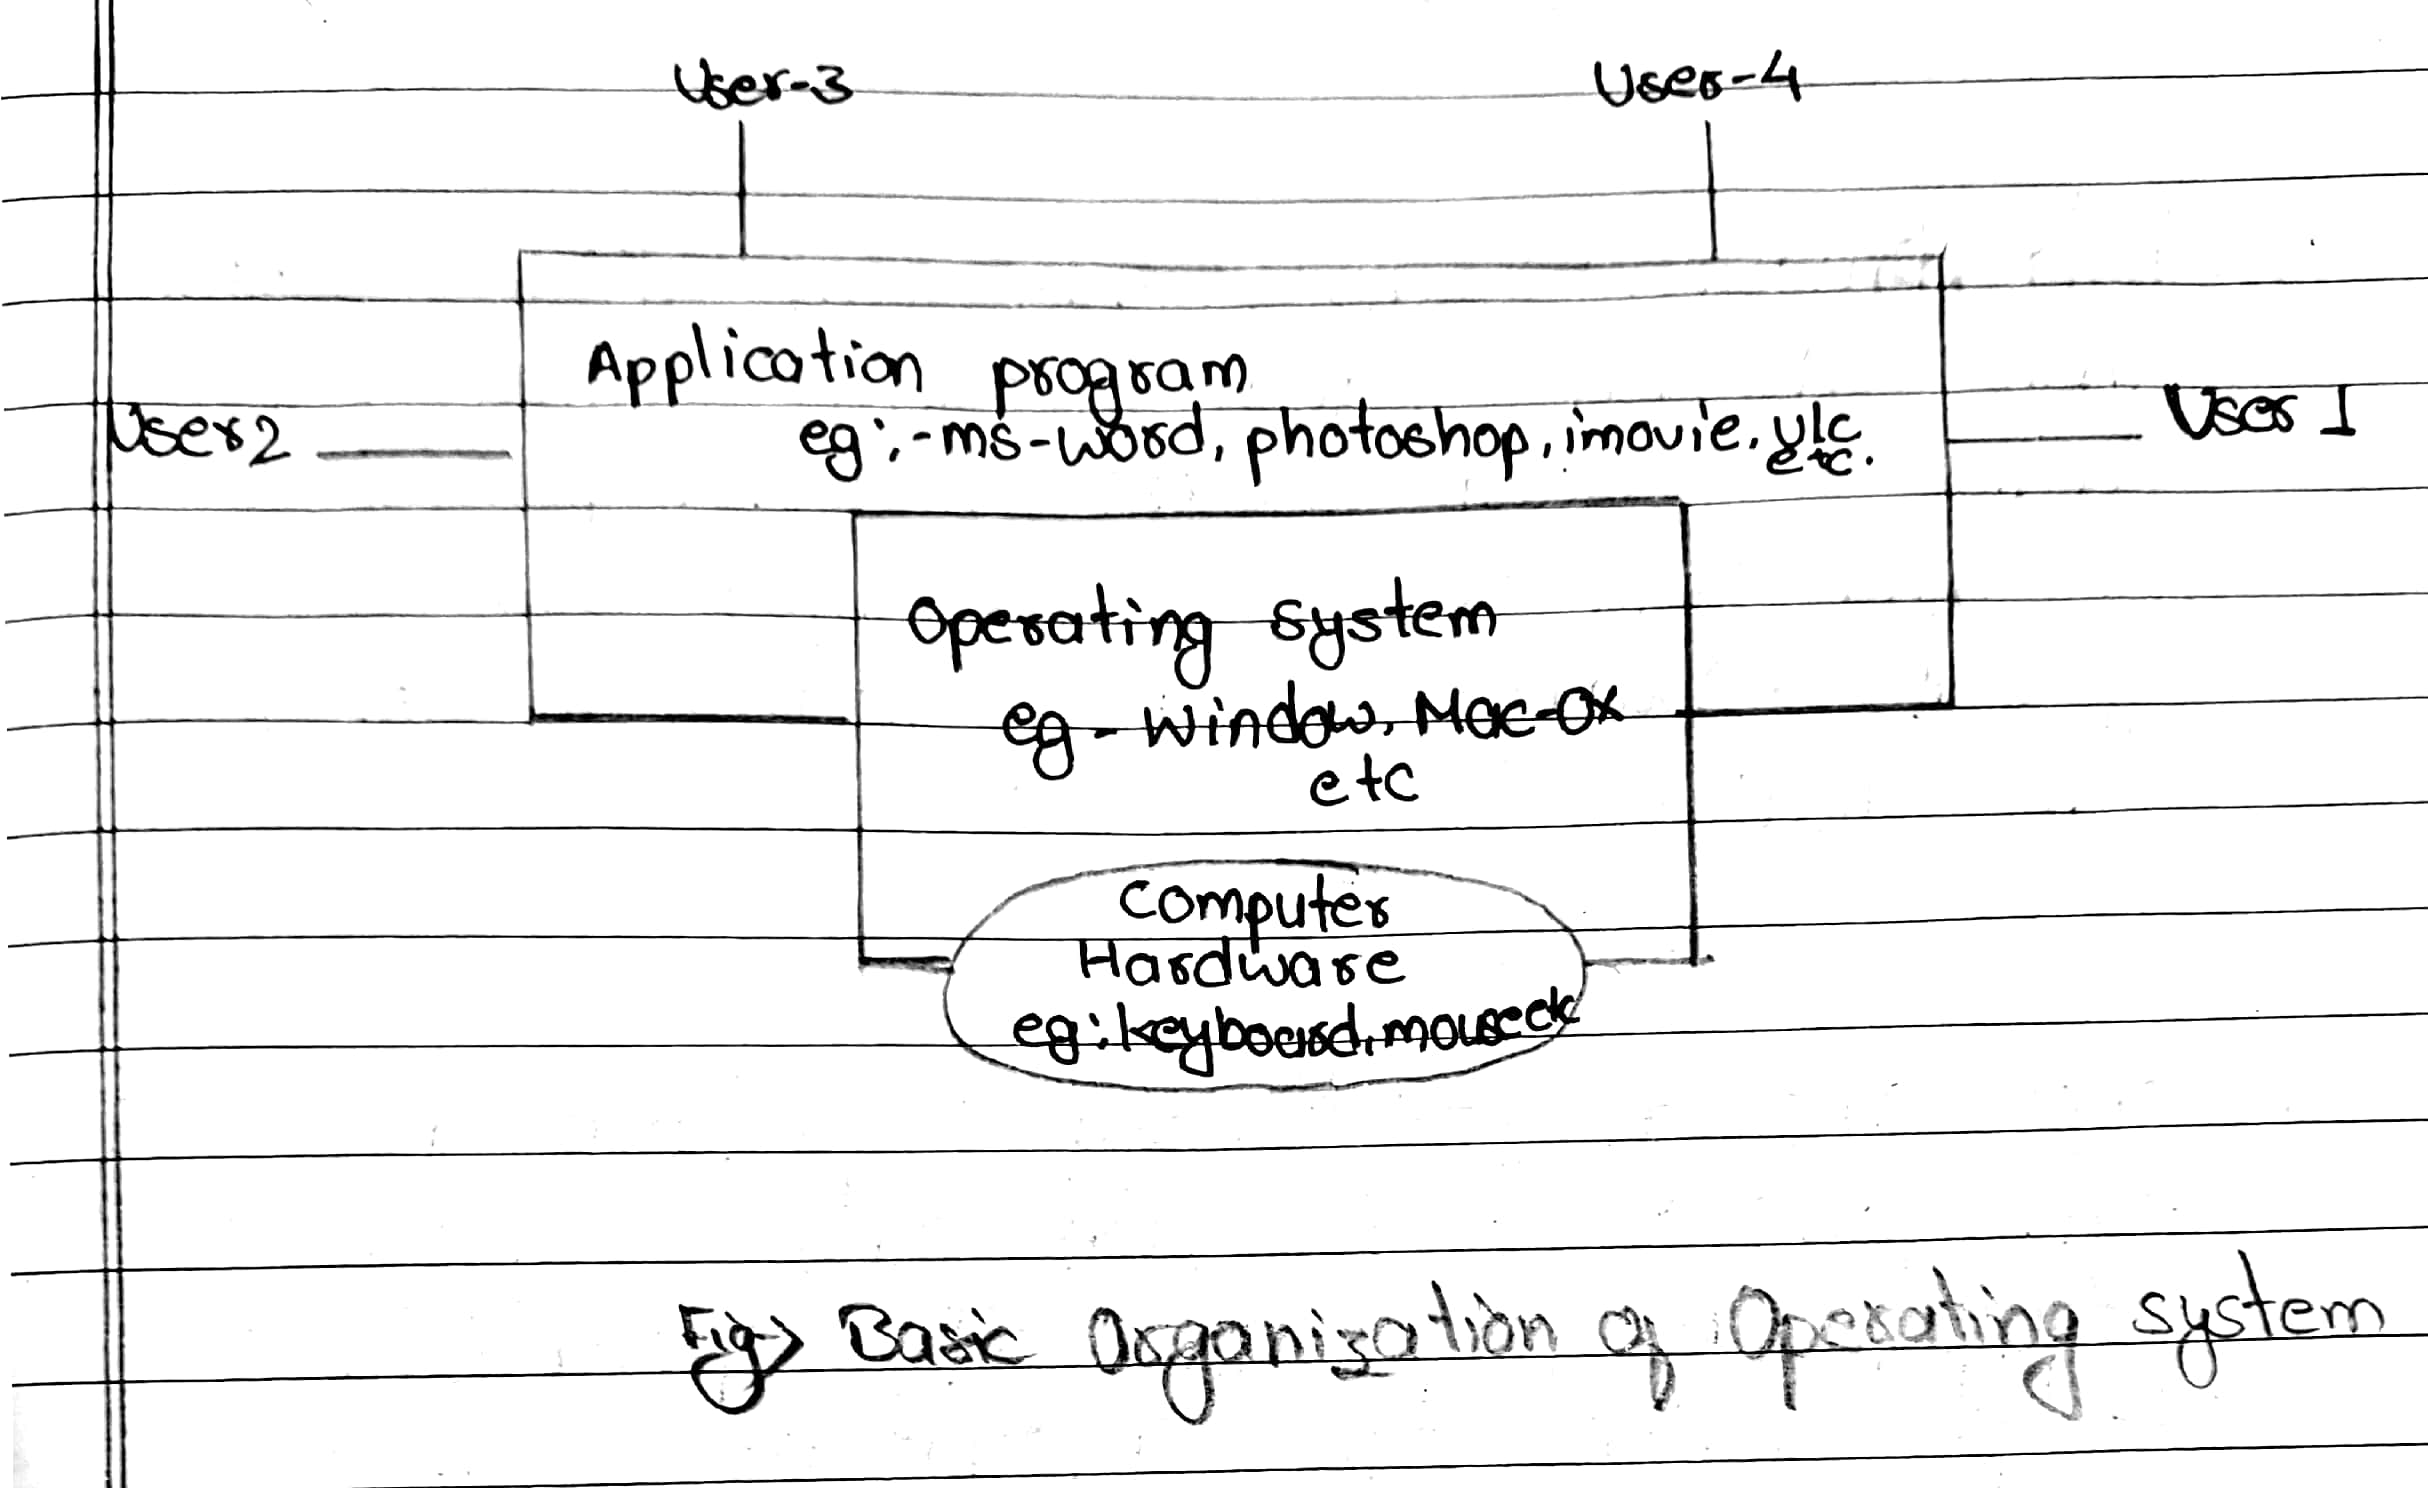 User-3 User-4
Application program
User 2 eg:-ms-word, photoshop, imovie, vlc User 1
etc.
Operating system
eg - Window, Mac-Ox
etc
Computer
Hardware
eg: keyboard, mouse etc
Fig> Basic Organization of Operating system